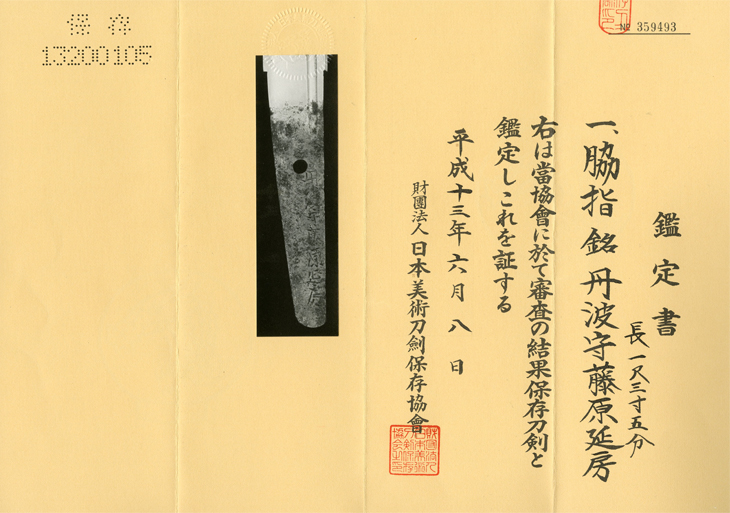 № 359493
鑑定書
一、脇指 銘 丹波守藤原延房
長一尺三寸五分
右は當協會に於て審査の結果保存刀剣と
鑑定しこれを証する
平成十三年六月八日
財團法人 日本美術刀劍保存協會
保存
13200105